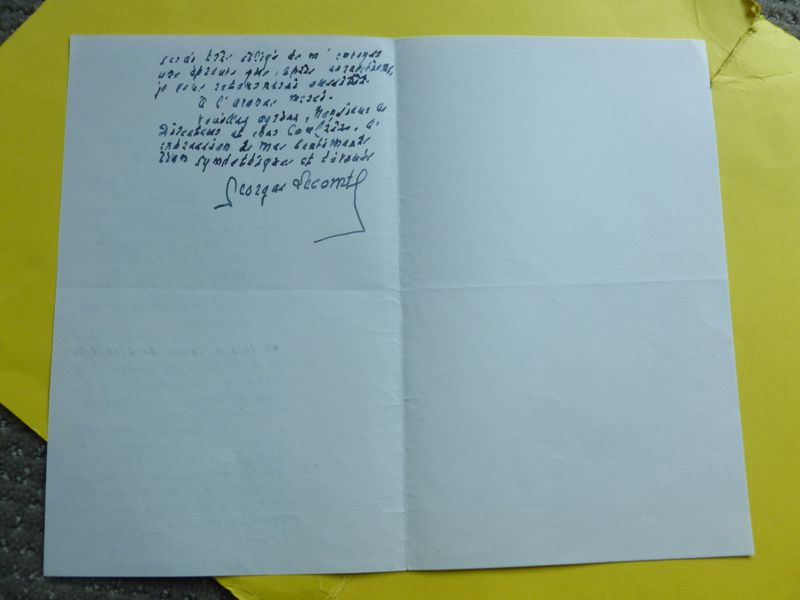 serais très obligé de m'envoyer
une épreuve que, après corrections,
je vous retournerai aussitôt.
À l'avance merci.
Veuillez agréer, Monsieur le
Directeur et cher Confrère, l'
expression de mes sentiments
bien sympathiques et dévoués
Georges Lecomte